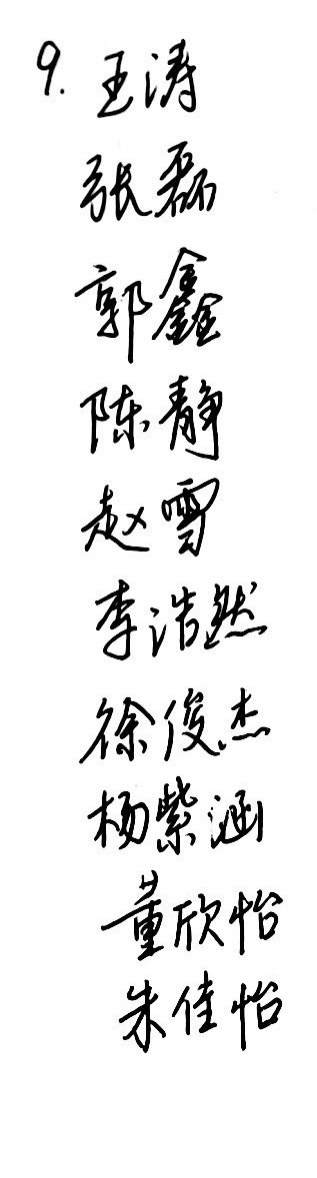 9. 王涛
张磊
郭鑫
陈静
赵雪
李浩然
徐俊杰
杨紫涵
董欣怡
朱佳怡